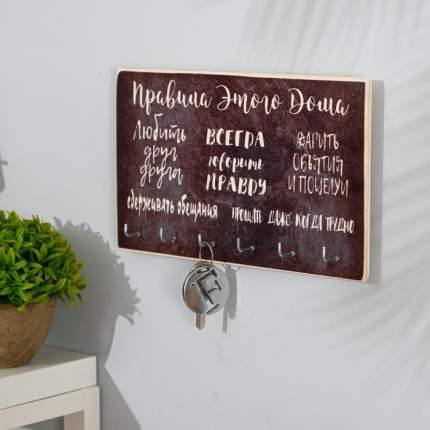 Правила Этого Дома
Любить
друг
друга
ВСЕГДА
говорить
ПРАВДУ
ДАРИТЬ
ОБЪЯТИЯ
И ПОЦЕЛУИ
сдерживать обещания
ПРОЩАТЬ ДАЖЕ КОГДА ТРУДНО
F